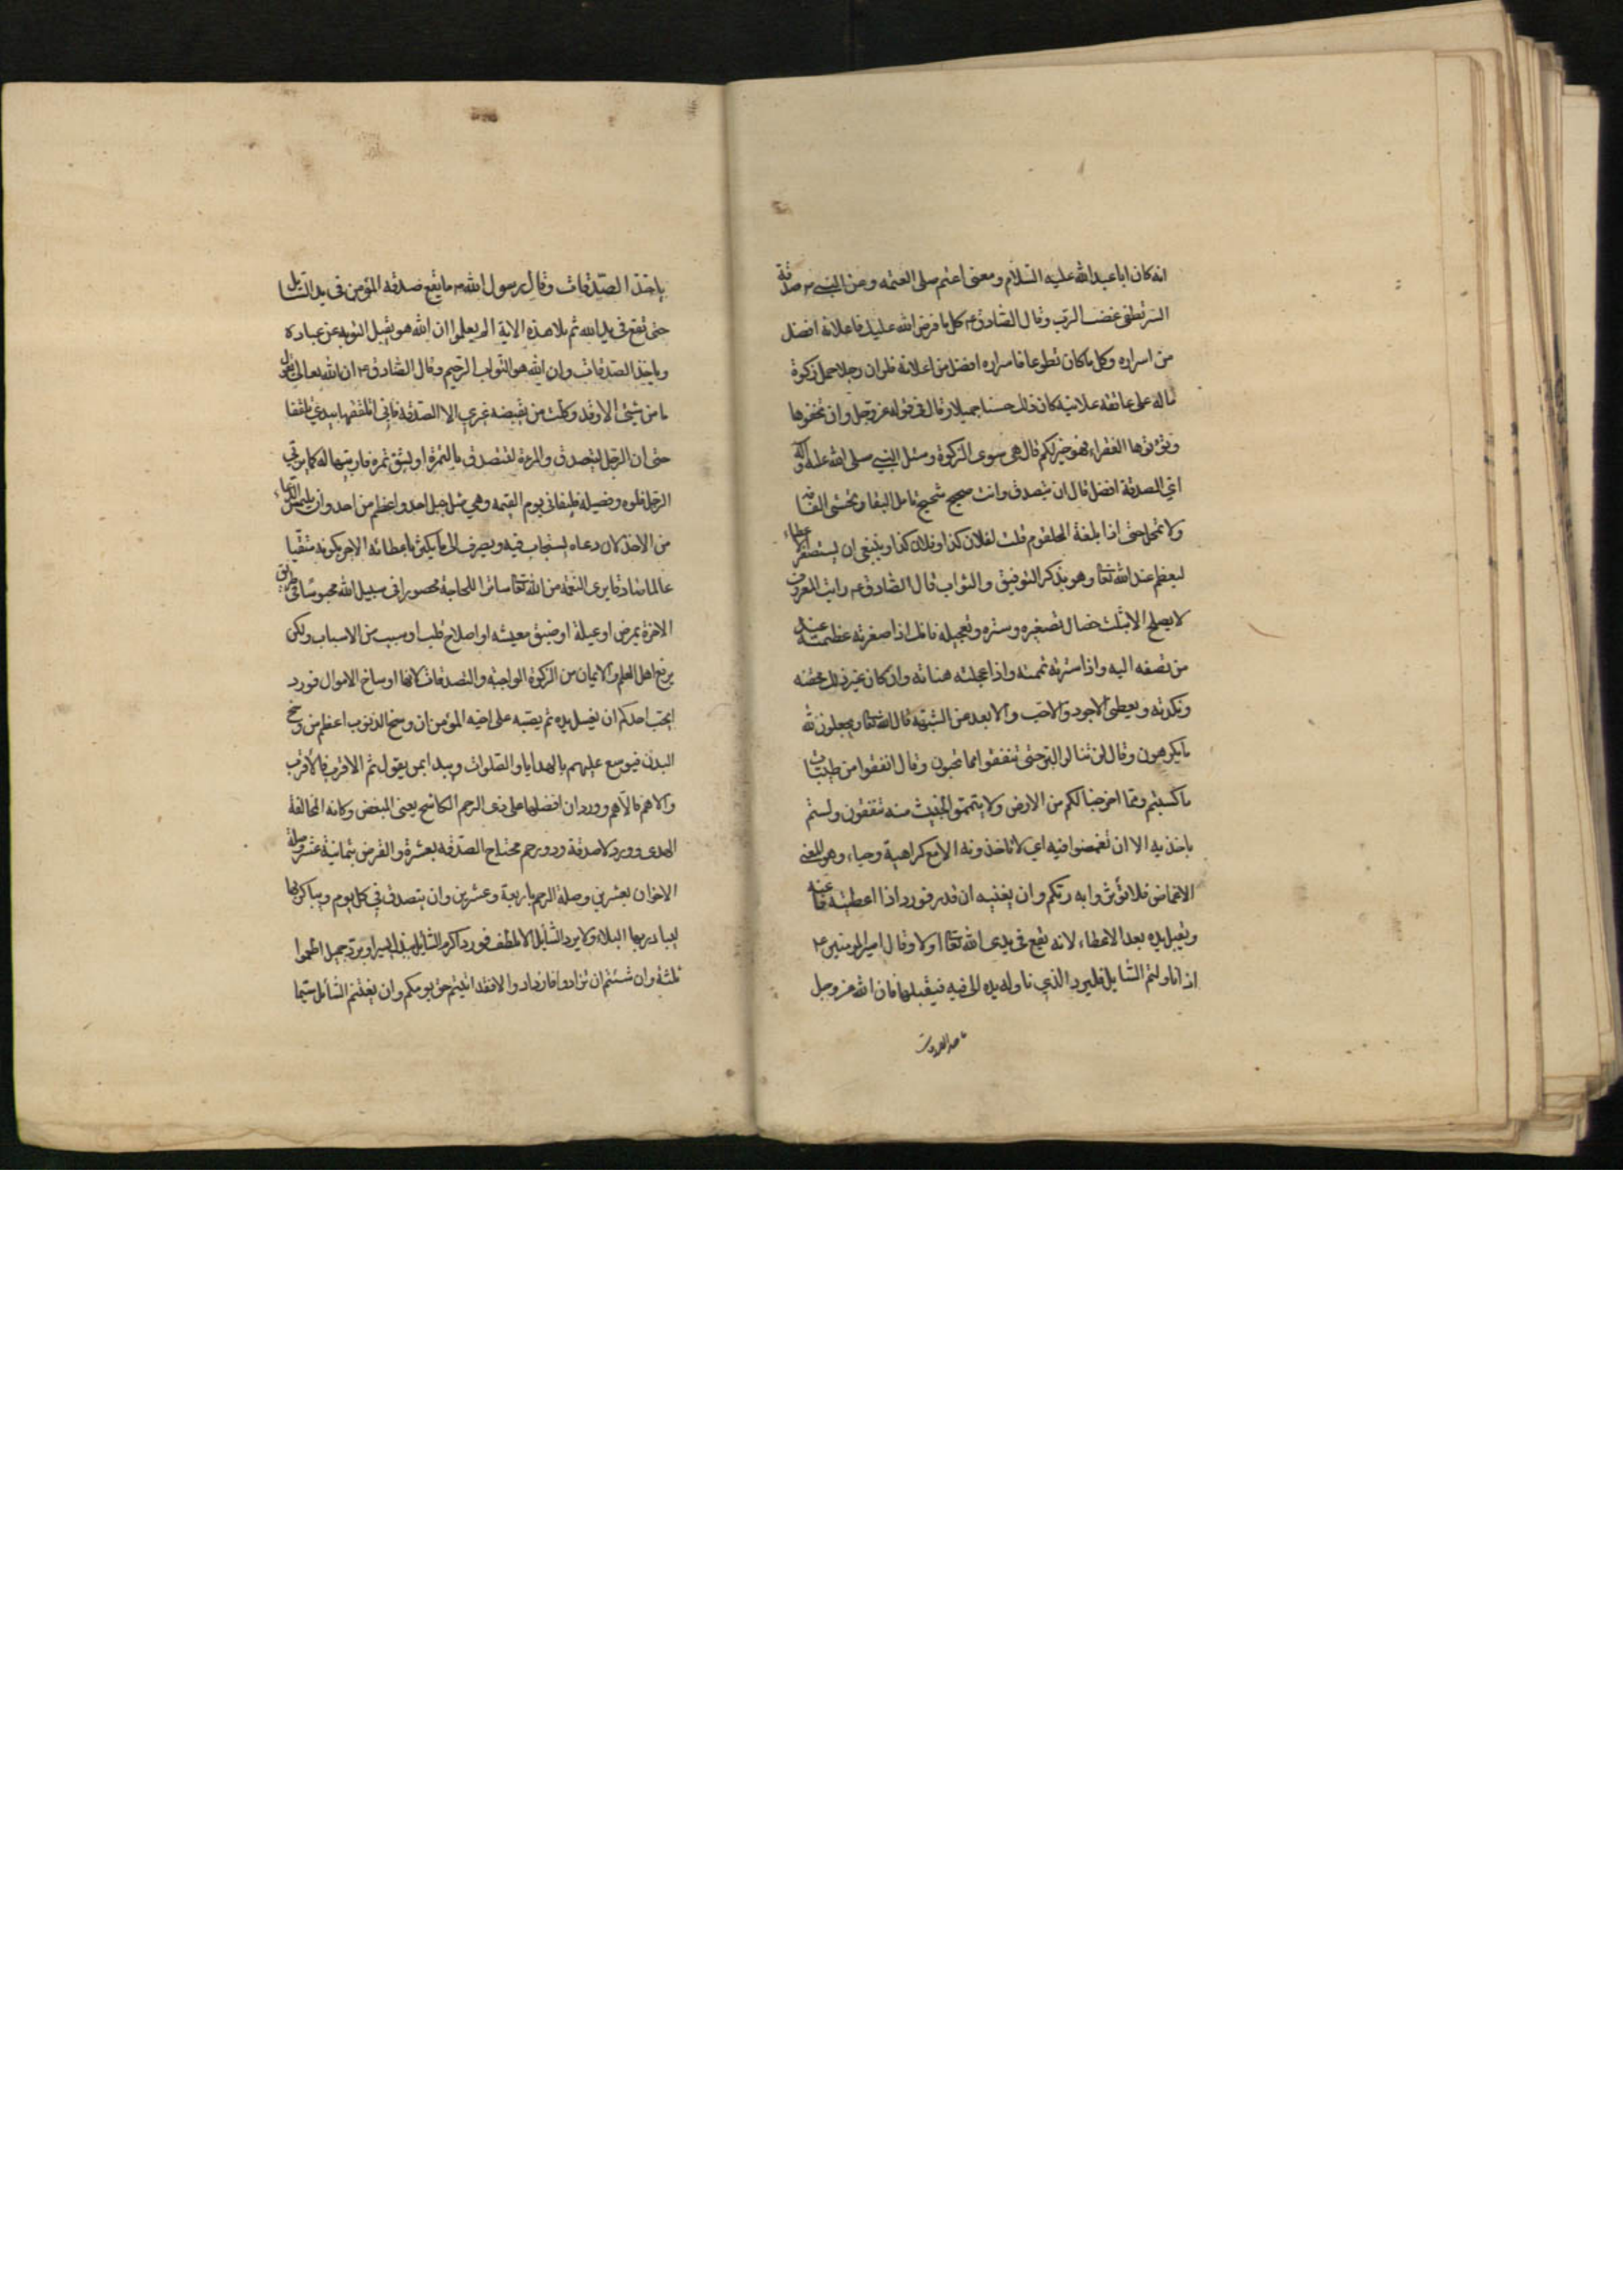 انه كان ابا عبد الله عليه السلام ومعنى اعتم صلى العتمه وعن النبي ص صدقة
السر تطفئ غضب الرب وقال الصادق ع كل ما فرض الله عليك فاعلانه افضل
من اسراره وكل ما كان تطوعا فاسراره افضل من اعلانه فلو ان رجلا حمل زكوة
ماله على عاتقه علانية كان ذلك حسنا جميلا وقال في قوله عز وجل وان تخفوها
وتؤتوها الفقراء فهو خير لكم قال هي سوى الزكوة وسئل النبي صلى الله عليه وآله
اي الصدقة افضل قال ان تتصدق وانت صحيح شحيح تامل البقا وتخشى الفاقة
ولا تمهل حتى اذا بلغة الحلقوم قلت لفلان كذا وفلان كذا وينبغي ان يستصغر عطاءه
ليعظم عند الله تعا وهو بذكر التوفيق والثواب قال الصادق ع رايت المعروف
لا يصلح الا بثلث خصال تصغيره وستره وتعجيله فانك اذا صغرته عظمته عند
من تصنعه اليه واذا سترته تممته واذا عجلته هناته وان كان غير ذلك محقته
ونكدته ويعطي الاجود والاحب والابعد من الشبهة قال الله تعا ويجعلون لله
ما يكرهون وقال لن تنالوا البر حتى تنفقوا مما تحبون وقال انفقوا من طيبات
ما كسبتم ومما اخرجنا لكم من الارض ولا تيمموا الخبيث منه تنفقون ولستم
باخذيه الا ان تغمضوا فيه اي لا تاخذونه الا مع كراهية وحياء وهو المعنى
الاغماض فلا تؤثروا به ربكم وان يغنيه ان قدر فورد اذا اعطيته فاغنه
ويقبل يده بعد الاعطاء لانه يقع في يدى الله تعا اولا وقال امير المومنين ع
اذا ناولتم السايل فليرد الذي ناوله يده الى فيه فيقبلها فان الله عز وجل
ياخذ الصدقات
ياخذ الصدقات وقال رسول الله ص ما يقع صدقة المؤمن في يد السايل
حتى تقع في يد الله ثم تلا هذه الاية الم يعلموا ان الله هو يقبل التوبه عن عباده
وياخذ الصدقات وان الله هو التواب الرحيم وقال الصادق ع ان الله تعالى يقول
ما من شئ الا وقد وكلت من يقبضه غيري الا الصدقة فاني اتلقفها بيدي تلقفا
حتى ان الرجل ليتصدق والمرءة لتتصدق بالتمرة او بشق تمره فاربيها له كما يربي
الرجل فلوه وفصيله فيلقاني يوم القيمه وهي مثل جبل احد واعظم من احد وان يلتمس الدعاء
من الاخذ لان دعاه يستجاب فيه ويصرف الى ما يكثر باعطائه الاجر بكونه متقيا
عالما صادقا يرى النعمة من الله تعا ساترا للحاجة محصورا في سبيل الله محبوسا في طريق
الاخرة بمرض او عيلة او ضيق معيشه او اصلاح قلب او سبب من الاسباب ولكن
يرفع اهل العلم والايمان من الزكوة الواجبة والتصدقات كانها اوساخ الاموال فورد
ايحب احدكم ان يغسل يده ثم يصبه على اخيه المؤمن ان وسخ الذنوب اعظم من وسخ
البدن فيوسع عليهم بالهدايا والصلوات ويبدا بمن يقول ثم الاقرب فالاقرب
والاهم فالاهم وورد ان افضلها على ذى الرحم الكاشح يعنى المبغض وكانه لمخالفة
الهدى وورد لا صدقة وذو رحم محتاج الصدقه بعشرة والقرض بثمانية عشر وصلة
الاخوان بعشرين وصلة الرحم باربعة وعشرين وان يتصدق في كل يوم ويباكر بها
ليبادر بها البلاء ولا يرد السايل الا بلطف فورد اكرم السايل ببذل يسير او برد جميل اطعموا
ثلثة وان شئتم ان تزادوا فازدادوا والا فقد اديتم حق يومكم وان يغتنم السائل سيما